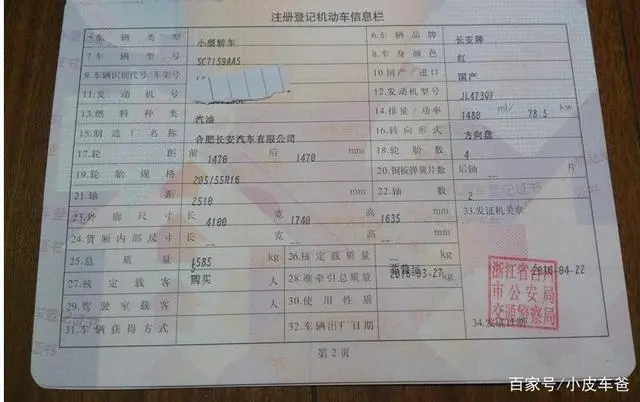 注册登记机动车信息栏
5.车辆类型 小型轿车 6.车辆品牌 长安牌
7.车辆型号 SC7159AA5 8.车身颜色 红
9.车辆识别代号/车架号 10.国产/进口 国产
11.发动机号 12.发动机型号 JL473QF
13.燃料种类 汽油 14.排量/功率 1480 ml/ 78.5 kw
15.制造厂名称 合肥长安汽车有限公司 16.转向形式 方向盘
17.轮距 前 1470 后 1470 mm 18.轮胎数 4
19.轮胎规格 205/55R16 20.钢板弹簧片数 后轴 -- 片
21.轴距 2510 mm 22.轴数 2
23.外廓尺寸 长 4100 宽 1740 高 1635 mm 33.发证机关章
24.货厢内部尺寸 长 -- 宽 -- 高 -- mm
25.总质量 1585 kg 26.核定载质量 -- kg
27.核定载客 5 人 28.准牵引总质量 -- kg
购买 2016-03-27
29.驾驶室载客 人 30.使用性质
31.车辆获得方式 32.车辆出厂日期 34.发证日期
2016-04-22
浙江省台州
市公安局
交通警察局
第2页
百家号/小皮车爸